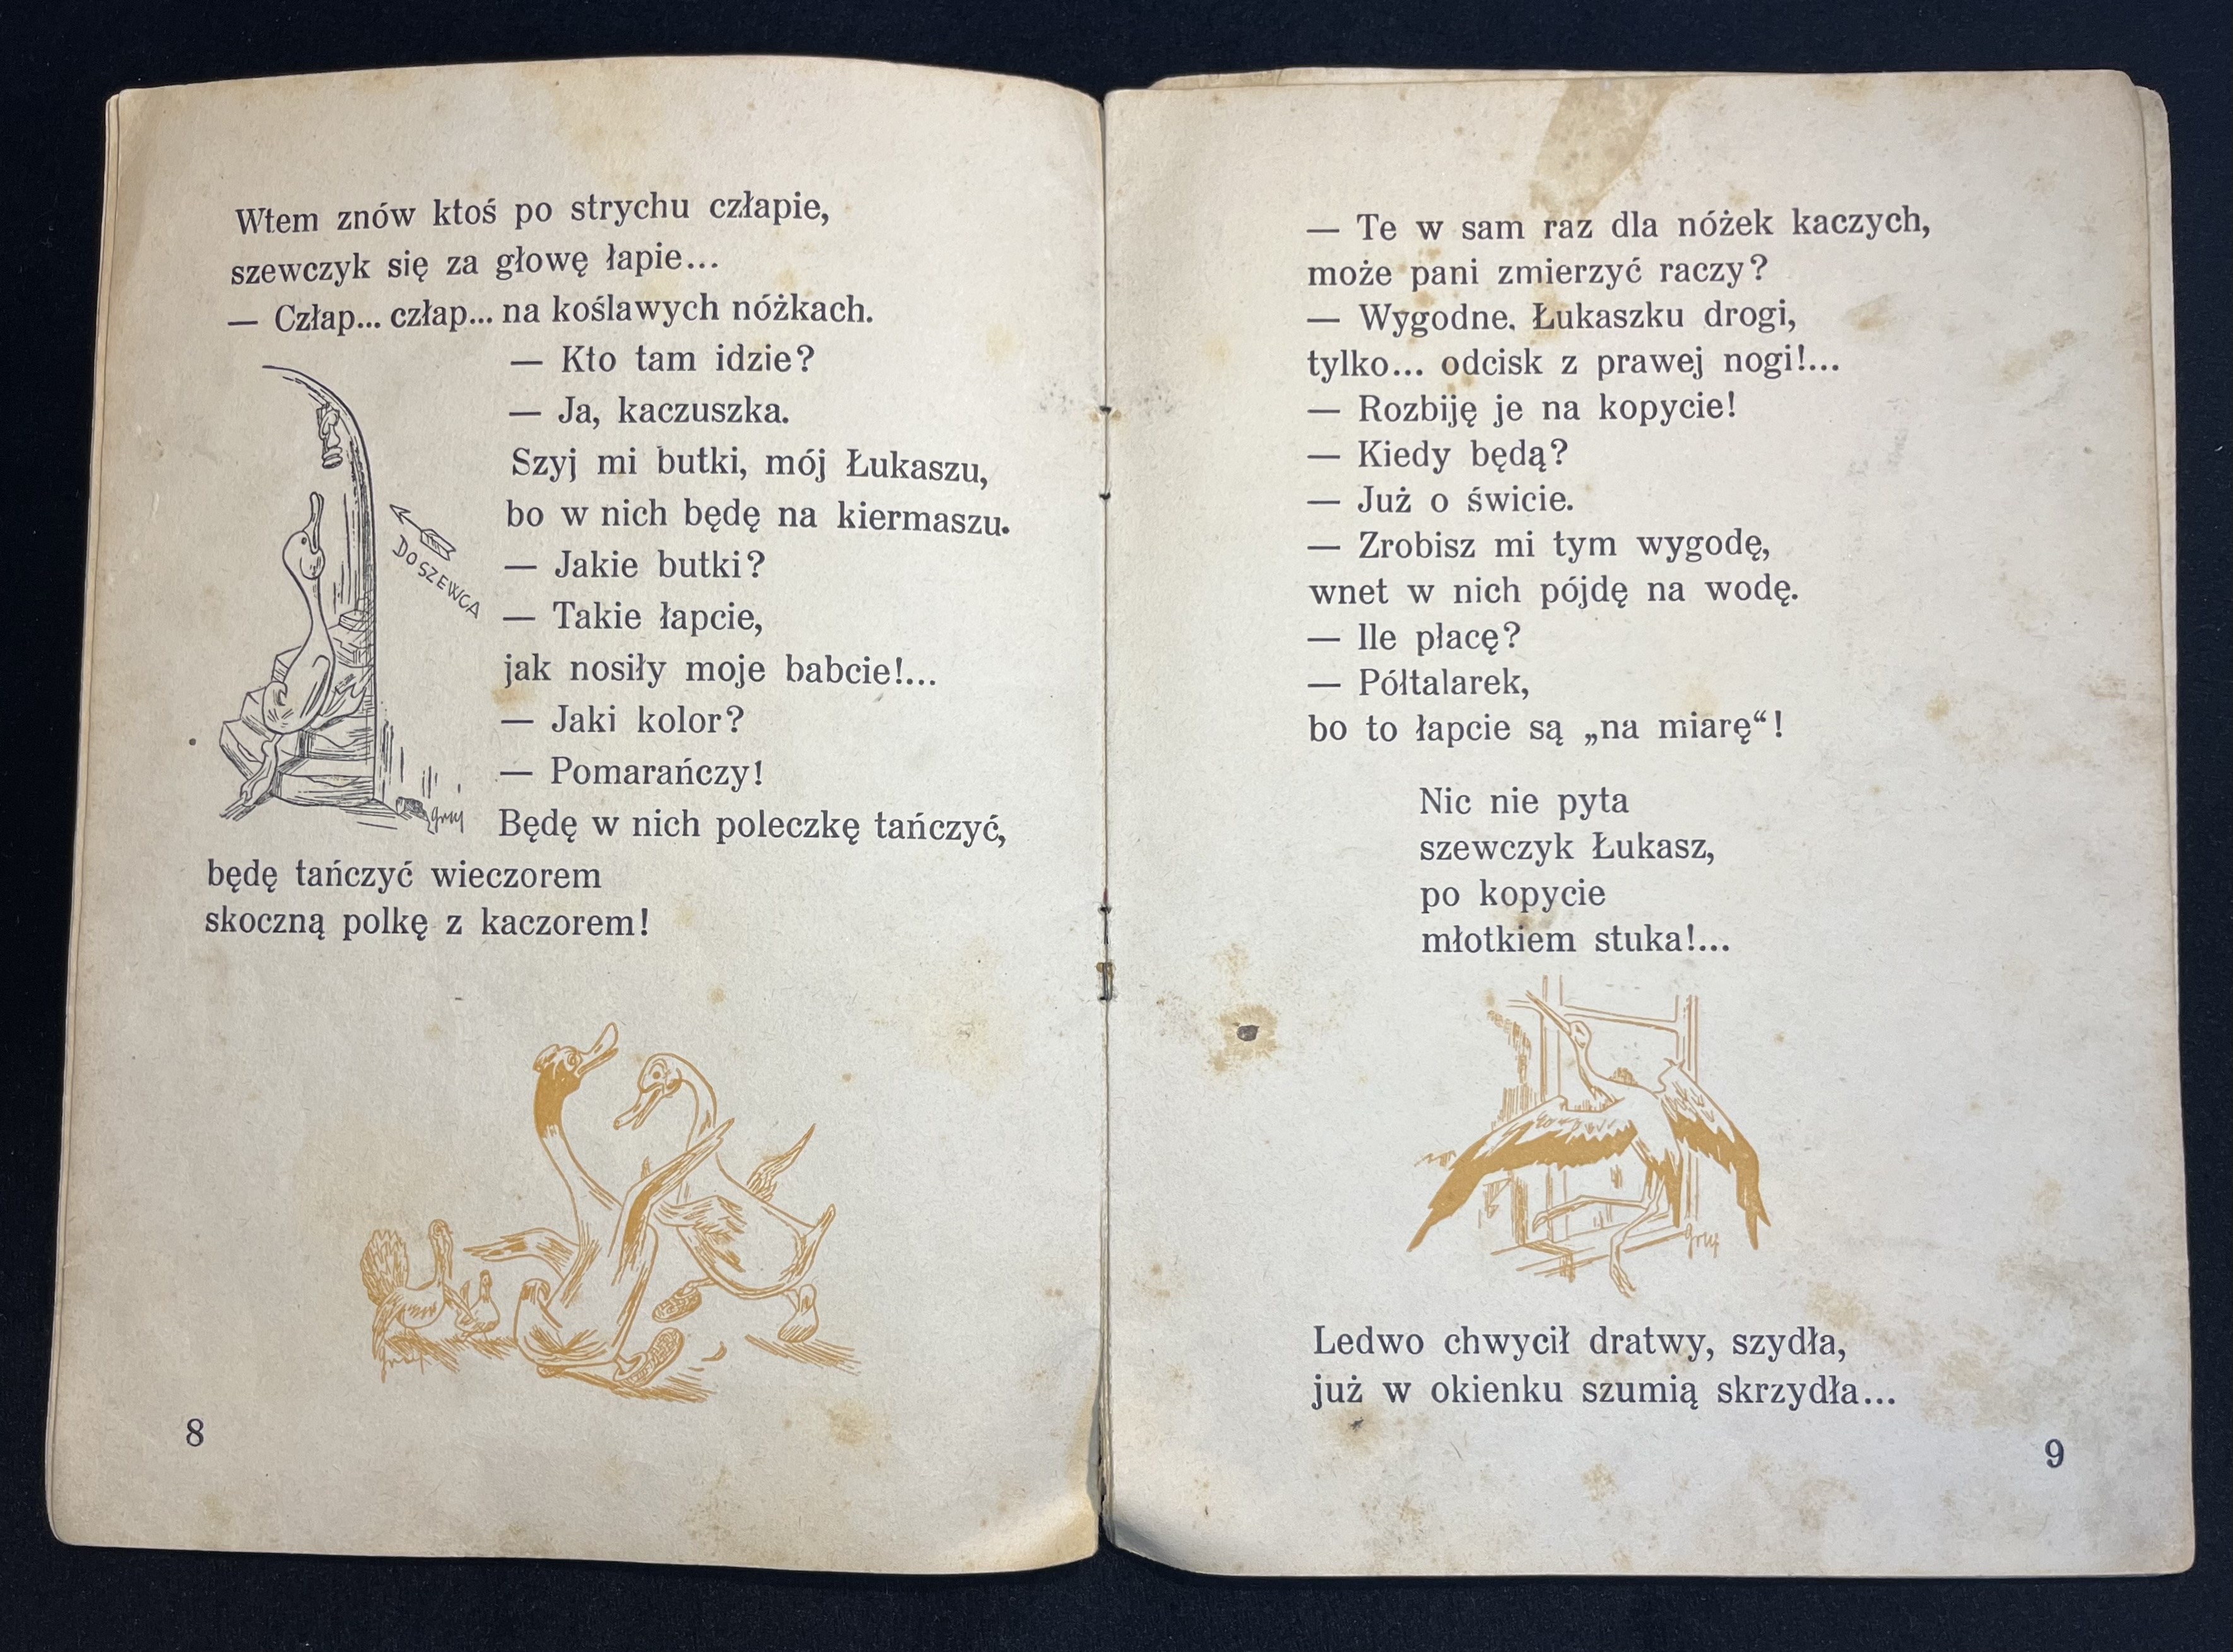 Wtem znów ktoś po strychu człapie,
szewczyk się za głowę łapie...
— Człap... człap... na koślawych nóżkach.
— Kto tam idzie?
— Ja, kaczuszka.
Szyj mi butki, mój Łukaszu,
bo w nich będę na kiermaszu.
— Jakie butki?
— Takie łapcie,
jak nosiły moje babcie!...
— Jaki kolor?
— Pomarańczy!
Będę w nich poleczkę tańczyć,
będę tańczyć wieczorem
skoczną polkę z kaczorem!
DO SZEWCA
8
— Te w sam raz dla nóżek kaczych,
może pani zmierzyć raczy?
— Wygodne. Łukaszku drogi,
tylko... odcisk z prawej nogi!...
— Rozbiję je na kopycie!
— Kiedy będą?
— Już o świcie.
— Zrobisz mi tym wygodę,
wnet w nich pójdę na wodę.
— Ile płacę?
— Półtalarek,
bo to łapcie są „na miarę“!
Nic nie pyta
szewczyk Łukasz,
po kopycie
młotkiem stuka!...
Ledwo chwycił dratwy, szydła,
już w okienku szumią skrzydła...
9